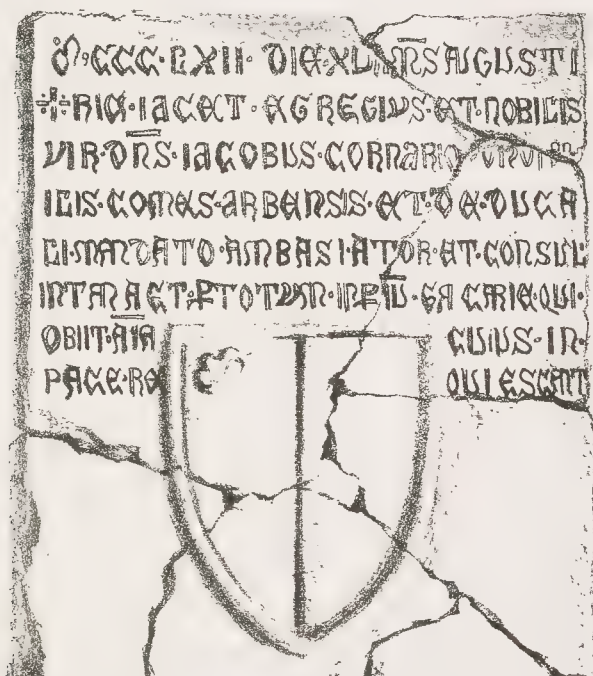 M·CCC·LXII· DIE· MS AUGUSTI
+HIC·IACET·EGREGIUS·ET·NOBILIS
VIR·DNS·IACOBUS·CORNARIO
ILIS·COMES·ARBENSIS·ET·DE·DUCA
LI·MANDATO·AMBASIATOR·ET·CONSUL
INTANA ET·PTOTUM·INPIU·GACARIE·QUI·
OBIIT·AIA CUIUS·IN·
PACE·RE QUIESCAT